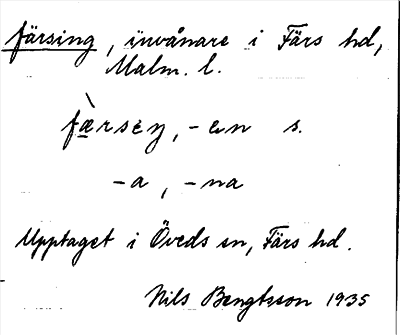 färsing, invånare i Färs hd,
Malm. l.
fæ̀rseŋ, -en s.
-a, -na
Upptaget i Öveds sn, Färs hd.
Nils Bengtsson 1935